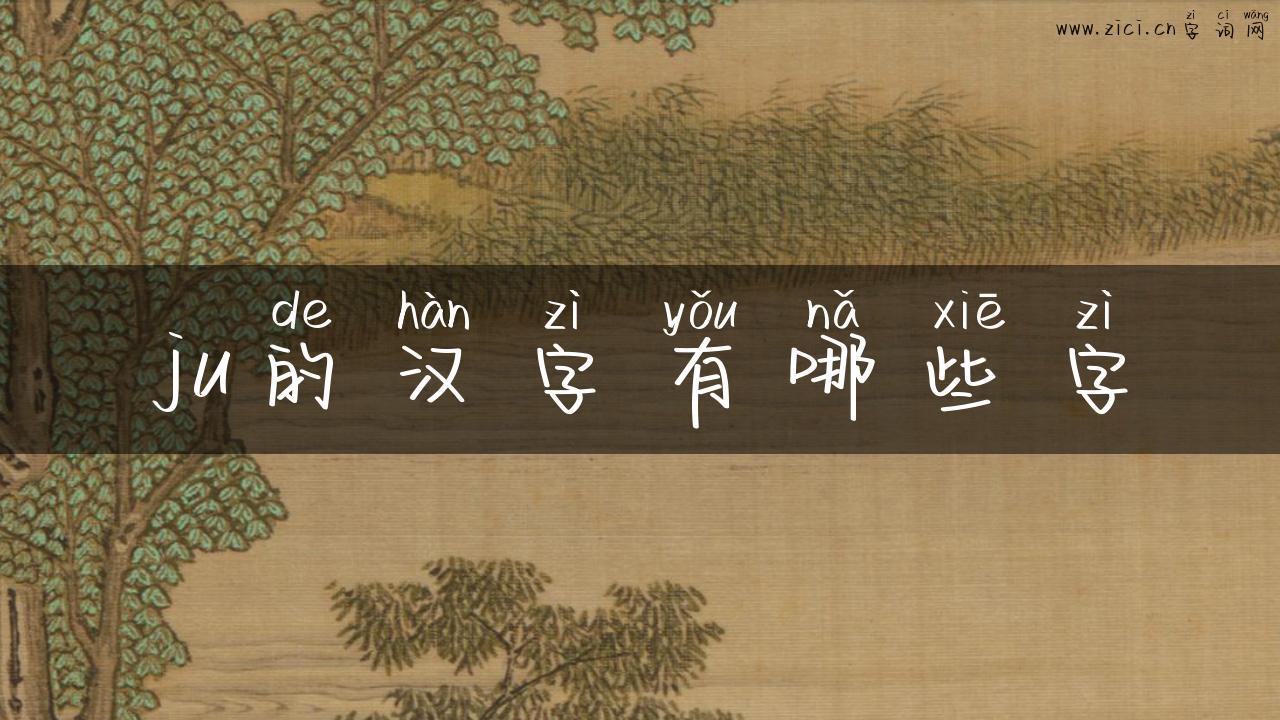 zì cí wǎng
www.zici.cn字词网
de hàn zì yǒu nǎ xiē zì
ju的汉字有哪些字